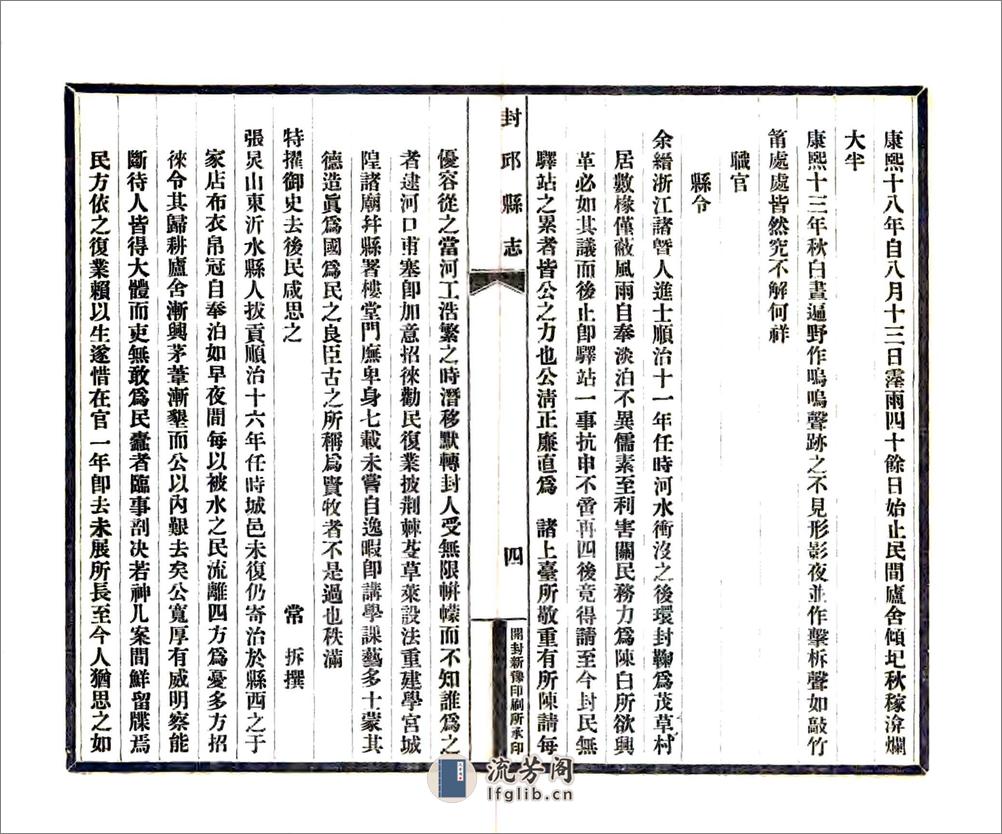 康熙十八年自八月十三日霪雨四十餘日始止民間廬舍傾圮秋稼渰爛
大半
康熙十三年秋白晝遍野作嗚嗚聲跡之不見形影夜並作擊柝聲如敲竹
筩處處皆然究不解何祥
職官
縣令
余縉浙江諸曁人進士順治十一年任時河水衝沒之後環封鞠爲茂草村
居數椽僅蔽風雨自奉淡泊不異儒素至利害關民務力爲陳白所欲興
革必如其議而後止卽驛站一事抗申不啻再四後竟得請至今封民無
驛站之累者皆公之力也公淸正廉直爲 諸上臺所敬重有所陳請每
封邱縣志
四
開封新豫印刷所承印
優容從之當河工浩繁之時潛移默轉封人受無限帡幪而不知誰爲之
者逮河口甫塞卽加意招徠勸民復業披荆棘芟草萊設法重建學宮城
隍諸廟幷縣署樓堂門廡卑身七載未嘗自逸暇卽講學課藝多士蒙其
德造眞爲國爲民之良臣古之所稱爲賢牧者不是過也秩滿
特擢御史去後民咸思之 常 拆撰
張炅山東沂水縣人拔貢順治十六年任時城邑未復仍寄治於縣西之于
家店布衣帛冠自奉泊如早夜間每以被水之民流離四方爲憂多方招
徠令其歸耕廬舍漸興茅葦漸墾而公以內艱去矣公寬厚有威明察能
斷待人皆得大體而吏無敢爲民蠹者臨事剖決若神几案間鮮留牒焉
民方依之復業賴以生遂惜在官一年卽去未展所長至今人猶思之如
流芳阁
lfglib.cn